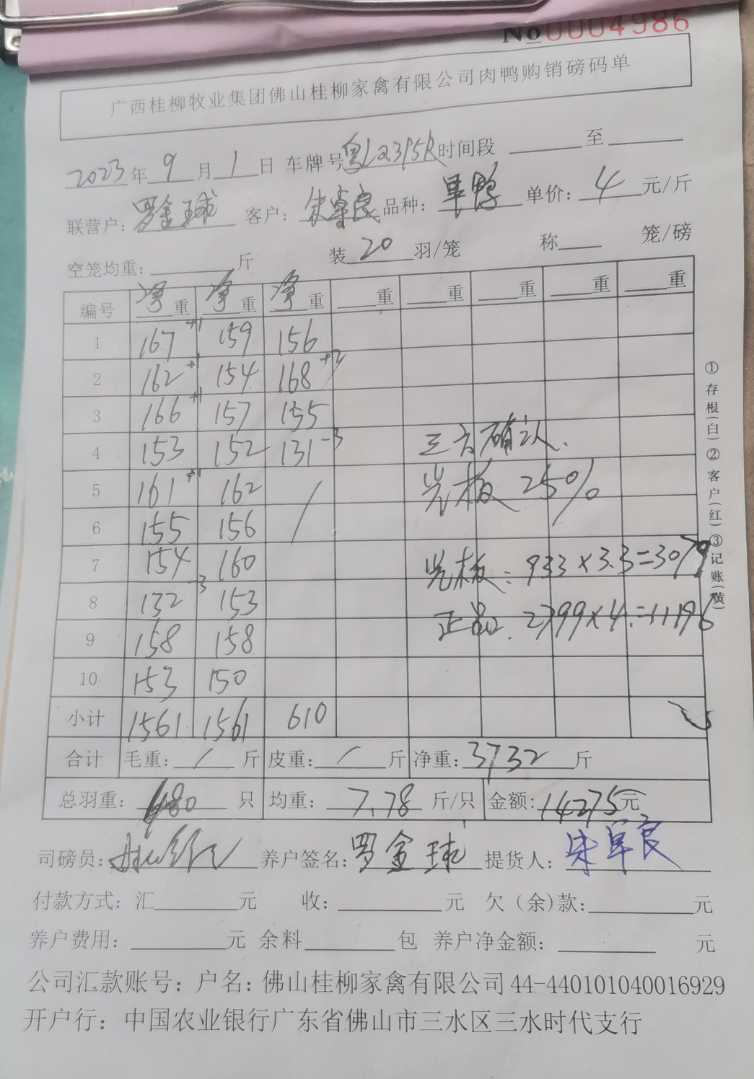 No 0004986
广西桂柳牧业集团佛山桂柳家禽有限公司肉鸭购销磅码单
2023年9月1日 车牌号粤L2315R时间段 至
联营户：罗金球 客户：宋军良 品种：单价：4元/斤
空笼均重： 斤 装20羽/笼 称 笼/磅
编号 净重 净重 净重 重 重 重 重 重
1 167+1 159 156
2 162+1 154 168+2
3 166+1 157 155
4 153 152 131-3 三方确认.
5 161+1 162 / 光板 25%
6 155 156
7 154 160 光板：933×3.3=3079
8 132-3 153 正品：2799×4=11196
9 158 158
10 153 150
小计 1561 1561 610
合计 毛重：/斤 皮重：/斤 净重：3732斤
总羽重：480只 均重：7.78斤/只 金额：14275元
司磅员： 养户签名：罗金球 提货人：宋军良
付款方式：汇 元 收： 元 欠（余）款： 元
养户费用： 元 余料 包 养户净金额： 元
公司汇款账号：户名：佛山桂柳家禽有限公司 44-440101040016929
开户行：中国农业银行广东省佛山市三水区三水时代支行
①存根（白）②客户（红）③记账（黄）